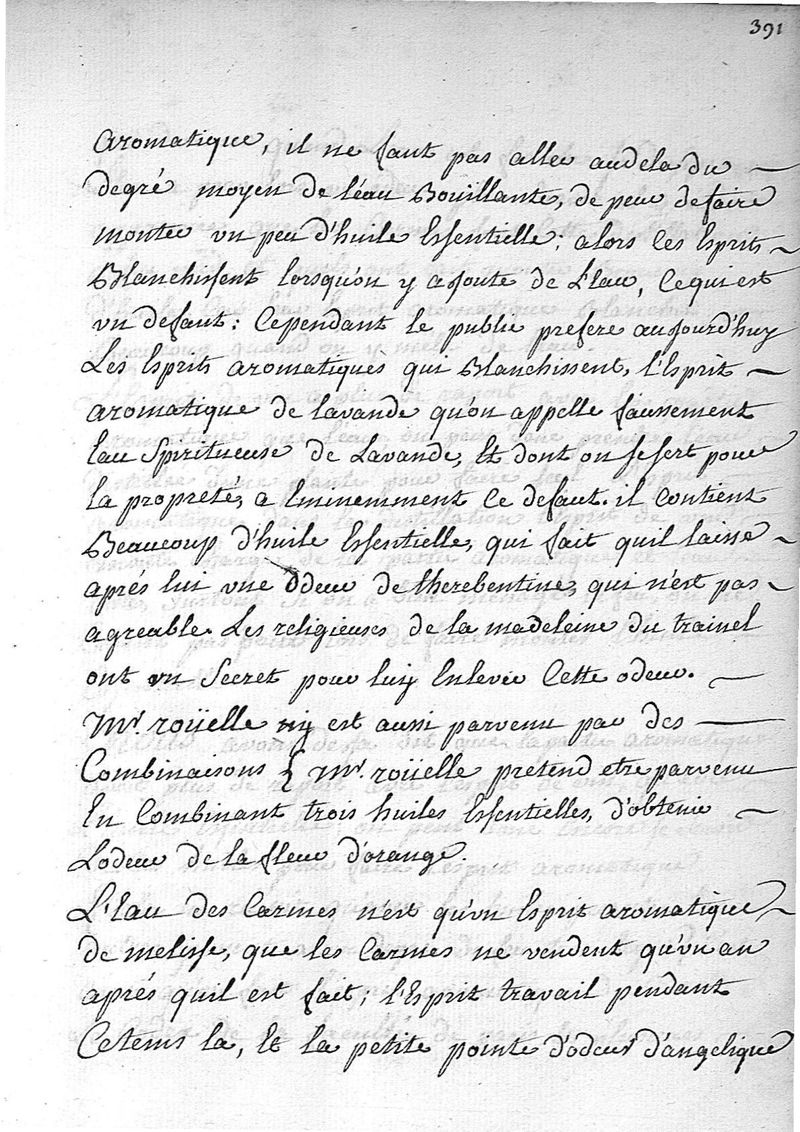 391
aromatique, il ne faut pas aller audela du
degré moyen de l'éau Bouillante, de peur defaire
monter un peu d'huile Essentielle; alors les Esprits
Blanchissent lorsqu'on y ajoute de L'Eau, Cequi est
un defaut: Cependant le public prefere aujourd'huy
Les Esprits aromatiques qui Blanchissent, l'Esprit
aromatique de lavande qu'on appelle faussement
Eau Spiritueuse de Lavande, Et dont on se sert pour
la propreté, a Eminemment Ce defaut. il Contient
Beaucoup d'huile Essentielle, qui fait quil laisse
aprés lui une Odeur de therebentine, qui n'est pas
agreable. Les religieuses de la madeleine du trainel
ont un Secret pour luy Enlever Cette odeur.
Mr. roüelle y est aussi parvenu par des
Combinaisons { Mr. roüelle pretend etre parvenu
En Combinant trois huiles Essentielles, d'obtenir
Lodeur de la fleur d'orange.
L'Eau des Carmes n'est qu'un Esprit aromatique
de melisse, que les Carmes ne vendent qu'un an
aprés quil est fait; l'Esprit travail pendant
Cetems la, Et la petite pointe d'odeur d'angelique